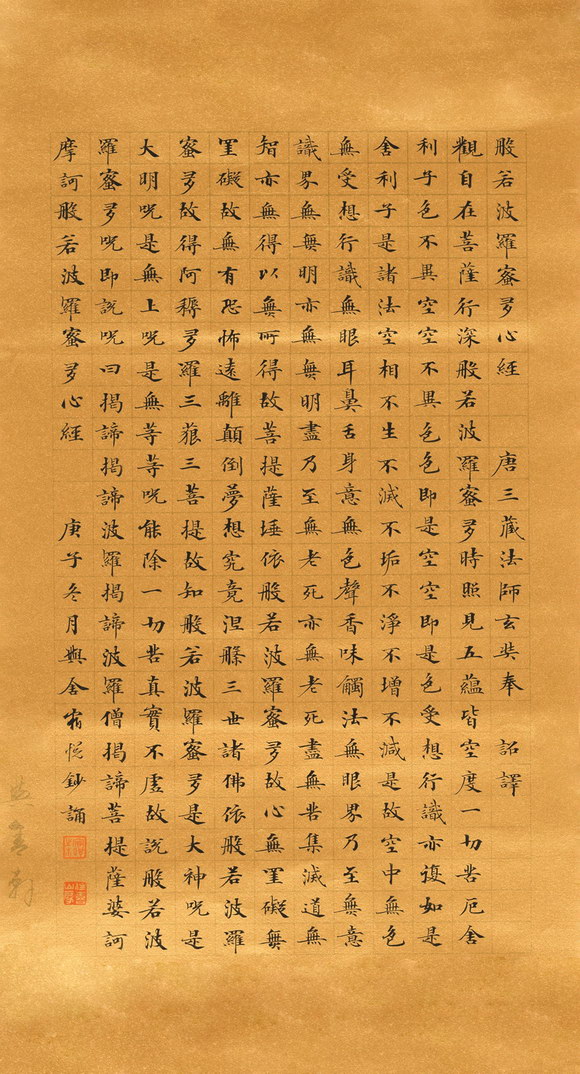 般若波羅蜜多心經 唐三藏法師玄奘奉 詔譯
觀自在菩薩行深般若波羅蜜多時照見五蘊皆空度一切苦厄舍
利子色不異空空不異色色即是空空即是色受想行識亦復如是
舍利子是諸法空相不生不滅不垢不淨不增不減是故空中無色
無受想行識無眼耳鼻舌身意無色聲香味觸法無眼界乃至無意
識界無無明亦無無明盡乃至無老死亦無老死盡無苦集滅道無
智亦無得以無所得故菩提薩埵依般若波羅蜜多故心無罣礙無
罣礙故無有恐怖遠離顛倒夢想究竟涅槃三世諸佛依般若波羅
蜜多故得阿耨多羅三藐三菩提故知般若波羅蜜多是大神呪是
大明呪是無上呪是無等等呪能除一切苦真實不虛故說般若波
羅蜜多呪即說呪曰揭諦揭諦波羅揭諦波羅僧揭諦菩提薩婆訶
摩訶般若波羅蜜多心經 庚子冬月與舍悅鈔誦